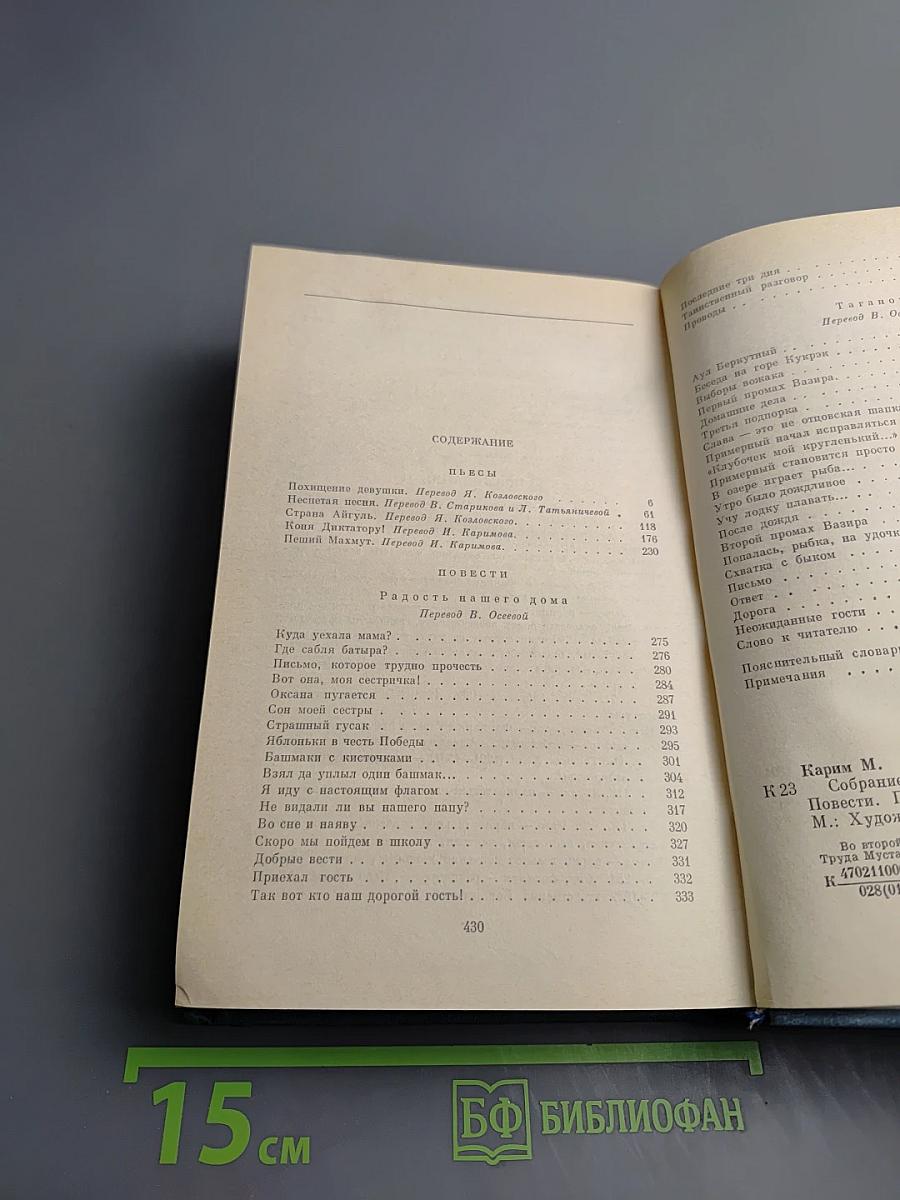 СОДЕРЖАНИЕ
ПЬЕСЫ
Похищение девушки. Перевод Я. Козловского . . . . . . 6
Неспетая песня. Перевод В. Старикова и Л. Татьяничевой . 61
Страна Айгуль. Перевод Я. Козловского. . . . . . . . 118
Коня Диктатору! Перевод И. Каримова. . . . . . . . . 176
Пеший Махмут. Перевод И. Каримова. . . . . . . . . . 230
ПОВЕСТИ
Радость нашего дома
Перевод В. Осеевой
Куда уехала мама? . . . . . . . . . . . . . . . . 275
Где сабля батыра? . . . . . . . . . . . . . . . . 276
Письмо, которое трудно прочесть . . . . . . . . . . 280
Вот она, моя сестричка! . . . . . . . . . . . . . . 284
Оксана пугается . . . . . . . . . . . . . . . . . 287
Сон моей сестры . . . . . . . . . . . . . . . . . 291
Страшный гусак . . . . . . . . . . . . . . . . . 293
Яблоньки в честь Победы . . . . . . . . . . . . . . 295
Башмаки с кисточками . . . . . . . . . . . . . . . 301
Взял да уплыл один башмак... . . . . . . . . . . . . 304
Я иду с настоящим флагом . . . . . . . . . . . . . 312
Не видали ли вы нашего папу? . . . . . . . . . . . 317
Во сне и наяву . . . . . . . . . . . . . . . . . 320
Скоро мы пойдем в школу . . . . . . . . . . . . . . 327
Добрые вести . . . . . . . . . . . . . . . . . . 331
Приехал гость . . . . . . . . . . . . . . . . . . 332
Так вот кто наш дорогой гость! . . . . . . . . . . . 333
430
Последние три дня . . . . .
Таинственный разговор . . . .
Проводы . . . . . . . .
Тагано
Перевод В. Ос
Аул Беркутный . . . . . .
Беседа на горе Кукрэк . . . .
Выборы вожака . . . . . .
Первый промах Вазира. . . . .
Домашние дела . . . . . .
Третья подпорка . . . . . .
Слава — это не отцовская шапк
Примерный начал исправляться
«Клубочек мой кругленький...»
Примерный становится просто
В озере играет рыба... . . .
Утро было дождливое . . . .
Учу лодку плавать... . . . .
После дождя . . . . . . .
Второй промах Вазира . . . .
Попалась, рыбка, на удочк
Схватка с быком . . . . .
Письмо . . . . . . . .
Ответ . . . . . . . .
Дорога . . . . . . . .
Неожиданные гости . . . .
Слово к читателю . . . .
Пояснительный словар
Примечания . . . . .
Карим М.
К 23 Собрание
Повести. П
М.: Худож
Во второй
Труда Муста
К 470211000
028(01
15 см
БФ БИБЛИОФАН